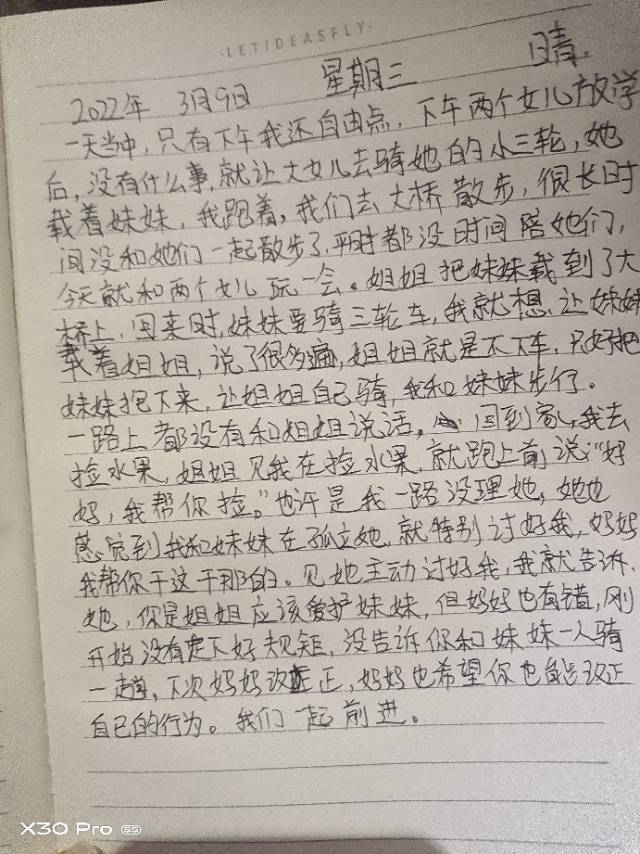 ·LETIDEASFLY·
2022年 3月9日 星期三 晴.
一天当中,只有下午我还自由点,下午两个女儿放学
后,没有什么事,就让大女儿去骑她的小三轮,她
载着妹妹,我跑着,我们去大桥散步,很长时
间没和她们一起散步了,平时都没时间陪她们,
今天就和两个女儿玩一会。姐姐把妹妹载到了大
桥上,回来时,妹妹要骑三轮车,我就想,让妹妹
载着姐姐,说了很多遍,姐姐就是不下车,只好把
妹妹抱下来,让姐姐自己骑,我和妹妹步行。
一路上都没有和姐姐说话。回到家,我去
捡水果,姐姐见我在捡水果,就跑上前说:“妈
妈,我帮你捡。”也许是我一路没理她,她也
感觉到我和妹妹在孤立她,就特别讨好我,妈妈
我帮你干这干那的。见她主动讨好我,我就告诉
她,你是姐姐应该爱护妹妹,但妈妈也有错,刚
开始没有定下好规矩,没告诉你和妹妹一人骑
一趟,下次妈妈改正,妈妈也希望你也能改正
自己的行为。我们一起前进。
X30 Pro 5G